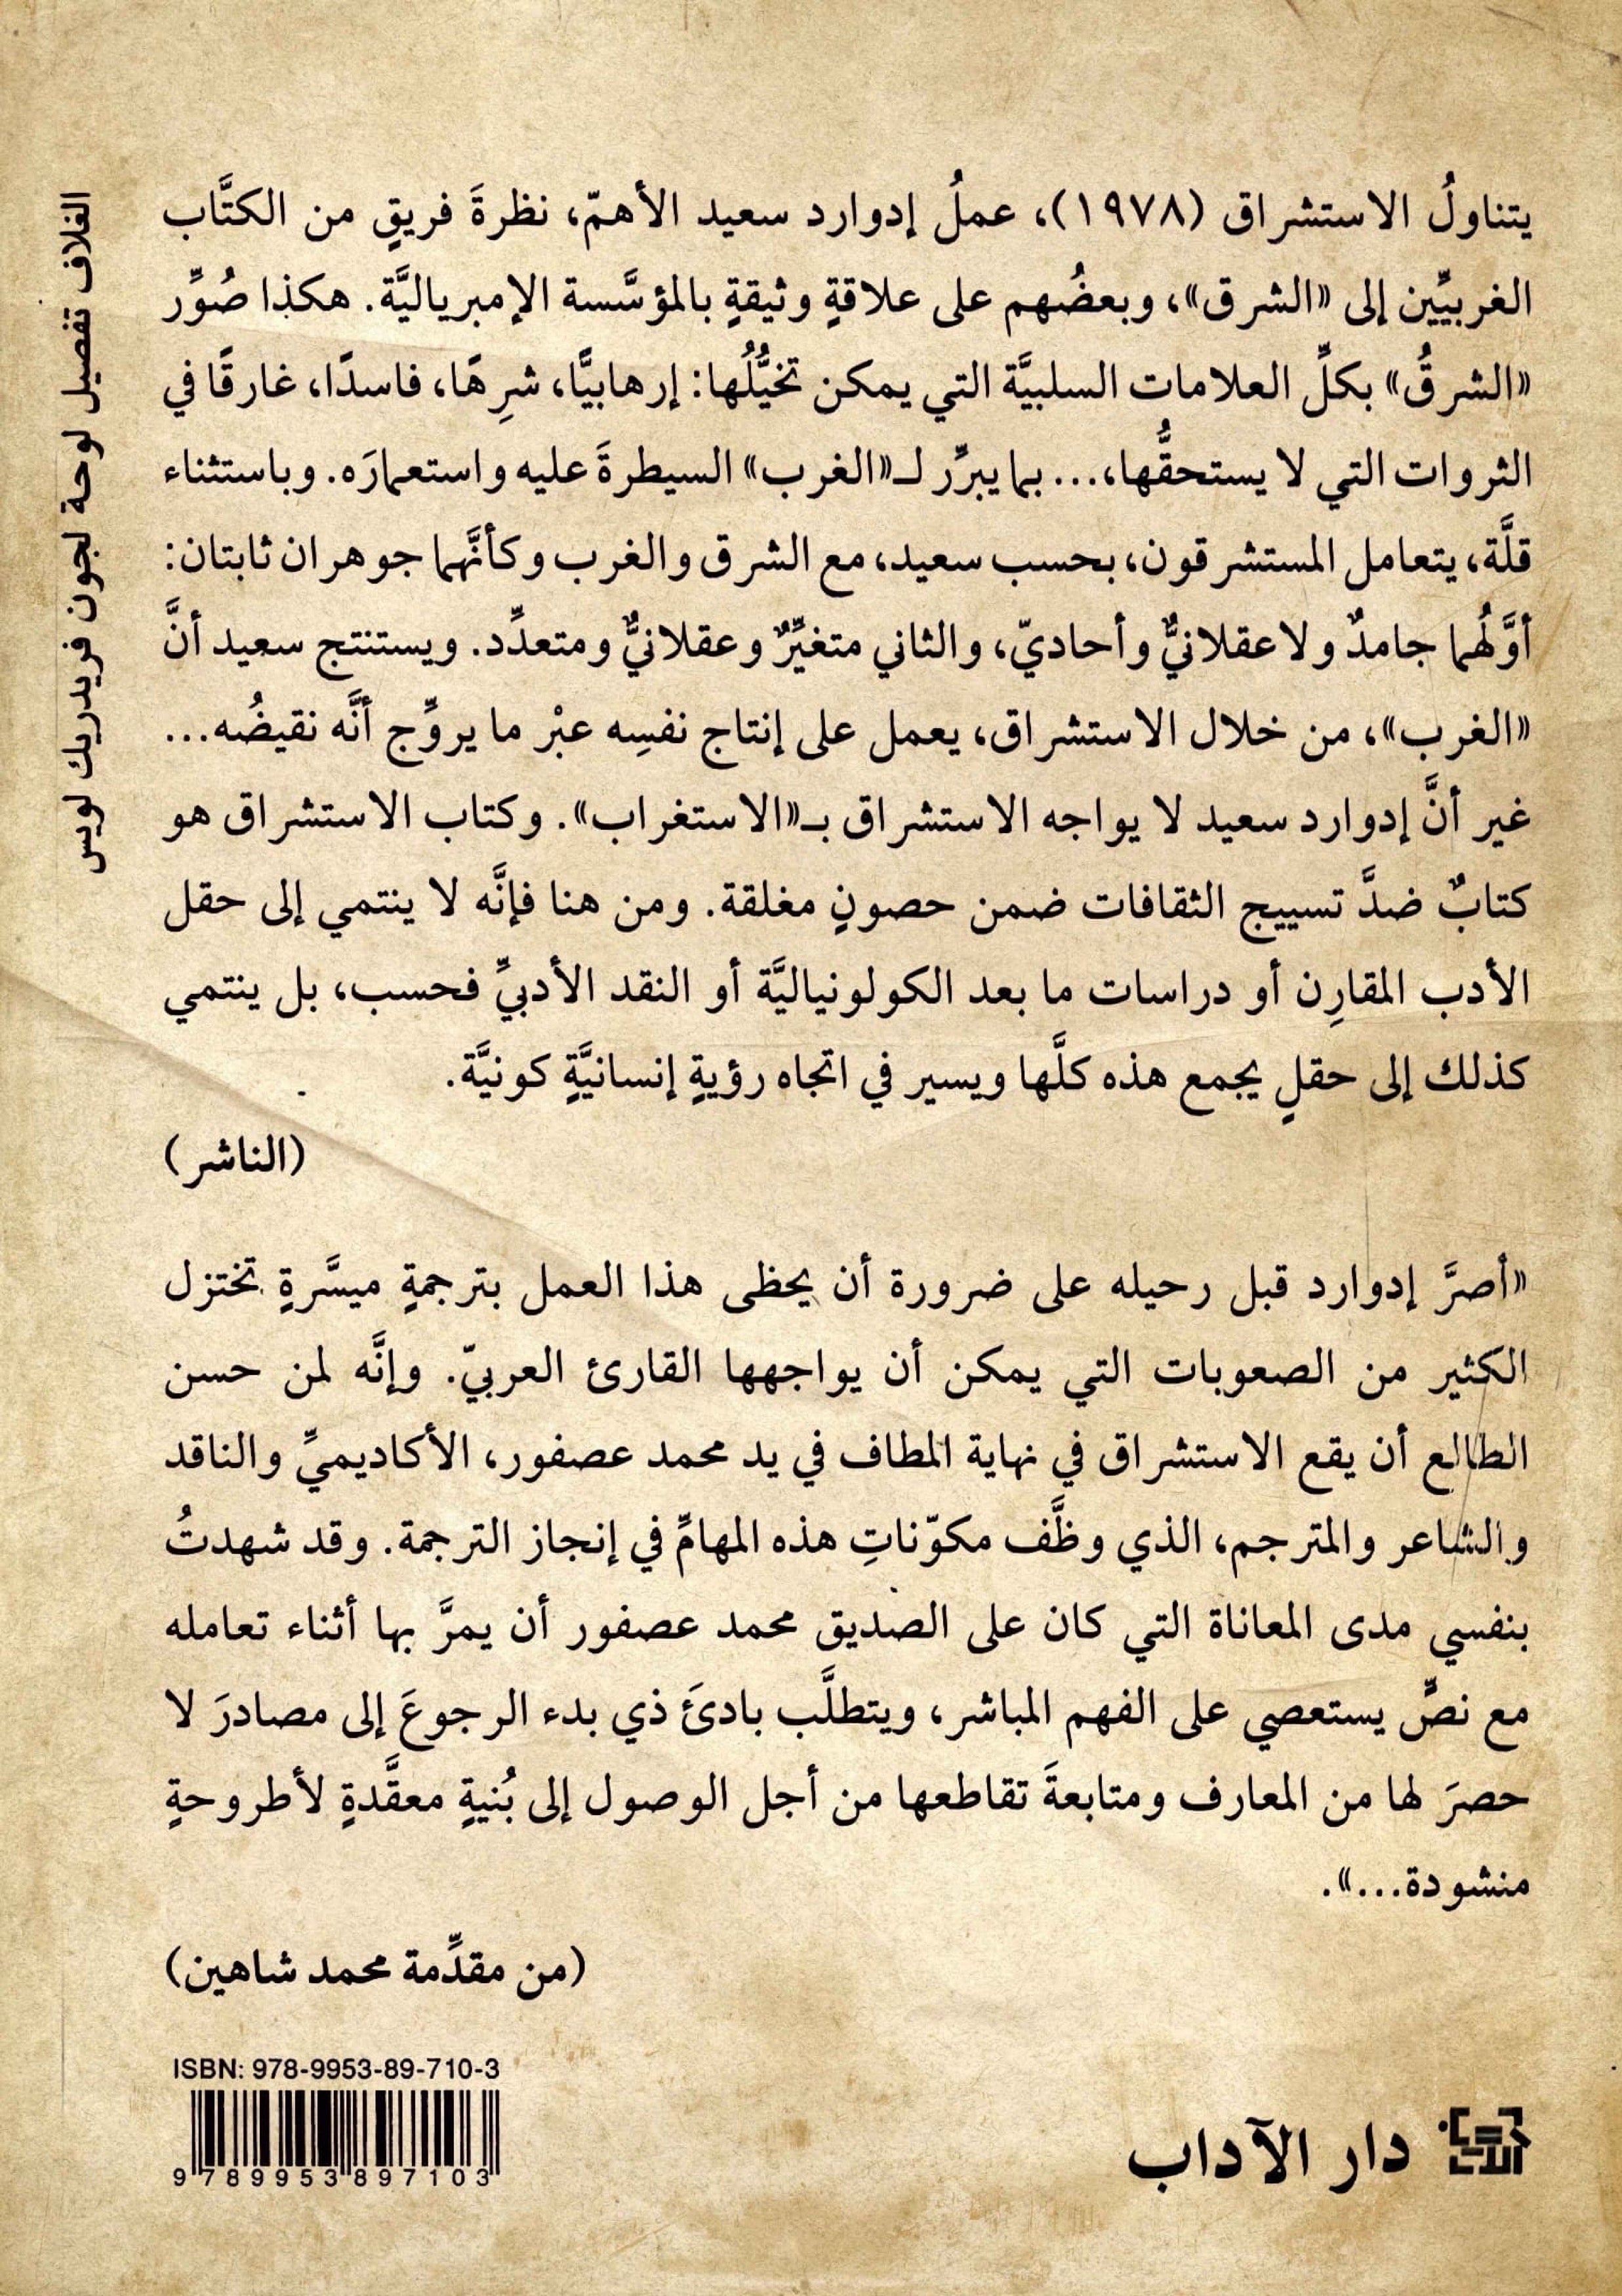 يتناولُ الاستشراق (١٩٧٨)، عملُ إدوارد سعيد الأهمّ، نظرةَ فريقٍ من الكتَّاب
الغربيِّين إلى «الشرق»، وبعضُهم على علاقةٍ وثيقةٍ بالمؤسَّسة الإمبرياليَّة. هكذا صُوِّر
«الشرقُ» بكلِّ العلامات السلبيَّة التي يمكن تخيُّلُها: إرهابيًّا، شرِهًا، فاسدًا، غارقًا في
الثروات التي لا يستحقُّها،... بما يبرِّر لـ«الغرب» السيطرةَ عليه واستعمارَه. وباستثناء
قلَّة، يتعامل المستشرقون، بحسب سعيد، مع الشرق والغرب وكأنَّهما جوهران ثابتان:
أوَّلُهما جامدٌ ولاعقلانيٌّ وأحاديّ، والثاني متغيِّرٌ وعقلانيٌّ ومتعدِّد. ويستنتج سعيد أنَّ
«الغرب»، من خلال الاستشراق، يعمل على إنتاج نفسِه عبْر ما يروِّج أنَّه نقيضُه...
غير أنَّ إدوارد سعيد لا يواجه الاستشراق بـ«الاستغراب». وكتاب الاستشراق هو
كتابٌ ضدَّ تسييج الثقافات ضمن حصونٍ مغلقة. ومن هنا فإنَّه لا ينتمي إلى حقل
الأدب المقارِن أو دراسات ما بعد الكولونياليَّة أو النقد الأدبيِّ فحسب، بل ينتمي
كذلك إلى حقلٍ يجمع هذه كلَّها ويسير في اتجاه رؤيةٍ إنسانيَّةٍ كونيَّة.
(الناشر)
«أصرَّ إدوارد قبل رحيله على ضرورة أن يحظى هذا العمل بترجمةٍ ميسَّرةٍ تختزل
الكثير من الصعوبات التي يمكن أن يواجهها القارئ العربيّ. وإنَّه لمن حسن
الطالع أن يقع الاستشراق في نهاية المطاف في يد محمد عصفور، الأكاديميِّ والناقد
والشاعر والمترجم، الذي وظَّف مكوّناتِ هذه المهامِّ في إنجاز الترجمة. وقد شهدتُ
بنفسي مدى المعاناة التي كان على الصديق محمد عصفور أن يمرَّ بها أثناء تعامله
مع نصٍّ يستعصي على الفهم المباشر، ويتطلَّب بادئَ ذي بدء الرجوعَ إلى مصادرَ لا
حصرَ لها من المعارف ومتابعةَ تقاطعها من أجل الوصول إلى بُنيةٍ معقَّدةٍ لأطروحةٍ
منشودة...».
(من مقدِّمة محمد شاهين)
الغلاف تفصيل لوحة لجون فريدريك لويس
ISBN: 978-9953-89-710-3
9 789953 897103
دار الآداب